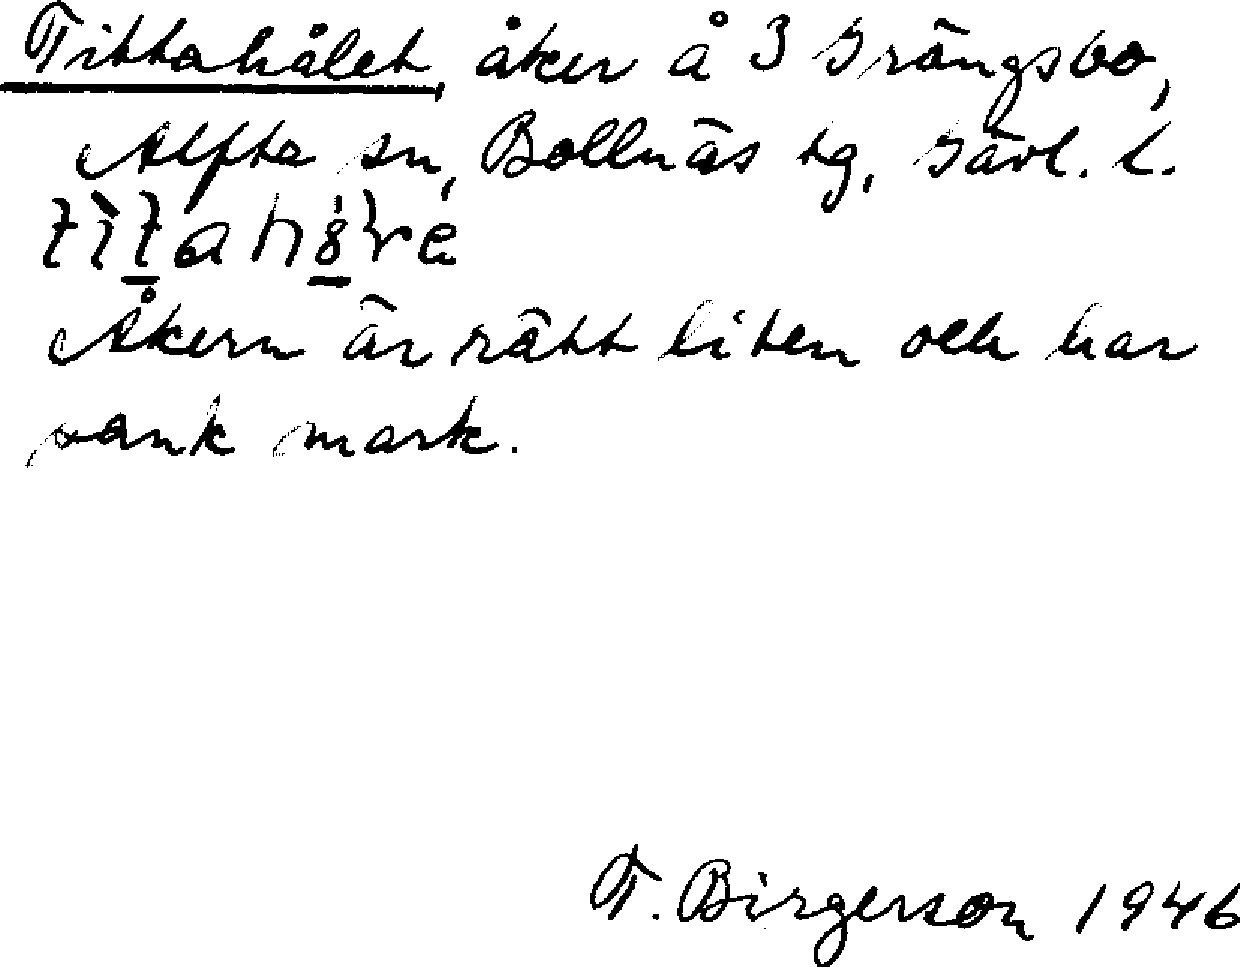 Tittahålet, åker å 3 Grängsbo,
Alfta sn, Bollnäs tg, Gävl. l.
Åkern är rätt liten och har
sank mark.
T. Birgerson 1946